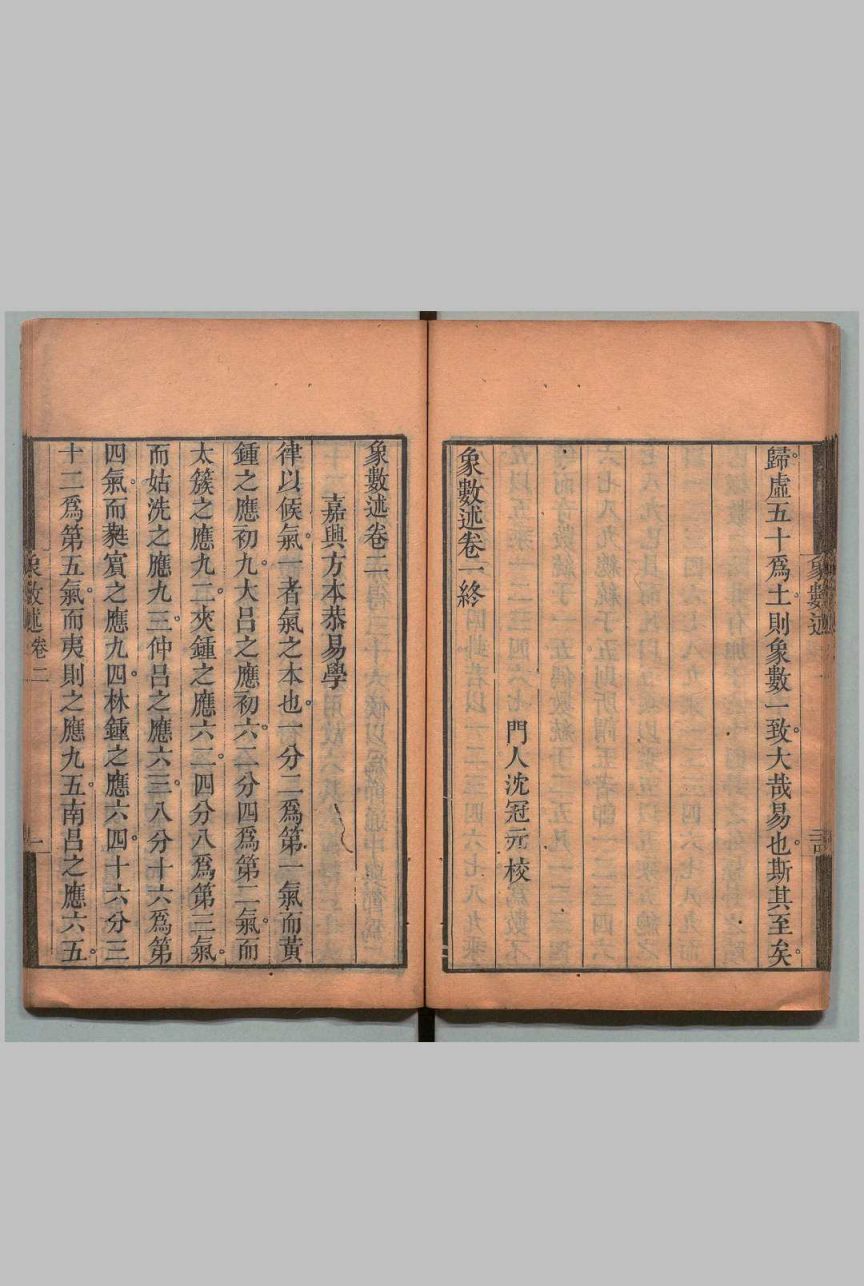 歸虛五十爲土則象數一致大哉易也斯其至矣
門人沈冠元校
象數述卷一終
象數述
象數述卷二
嘉興方本恭易學
律以候氣一者氣之本也一分二爲第一氣而黃
鍾之應初九大呂之應初六二分四爲第二氣而
太簇之應九二夾鍾之應六二四分八爲第三氣
而姑洗之應九三仲呂之應六三八分十六爲第
四氣而蕤賓之應九四林鍾之應六四十六分三
十二爲第五氣而夷則之應九五南呂之應六五
象數述卷二
一